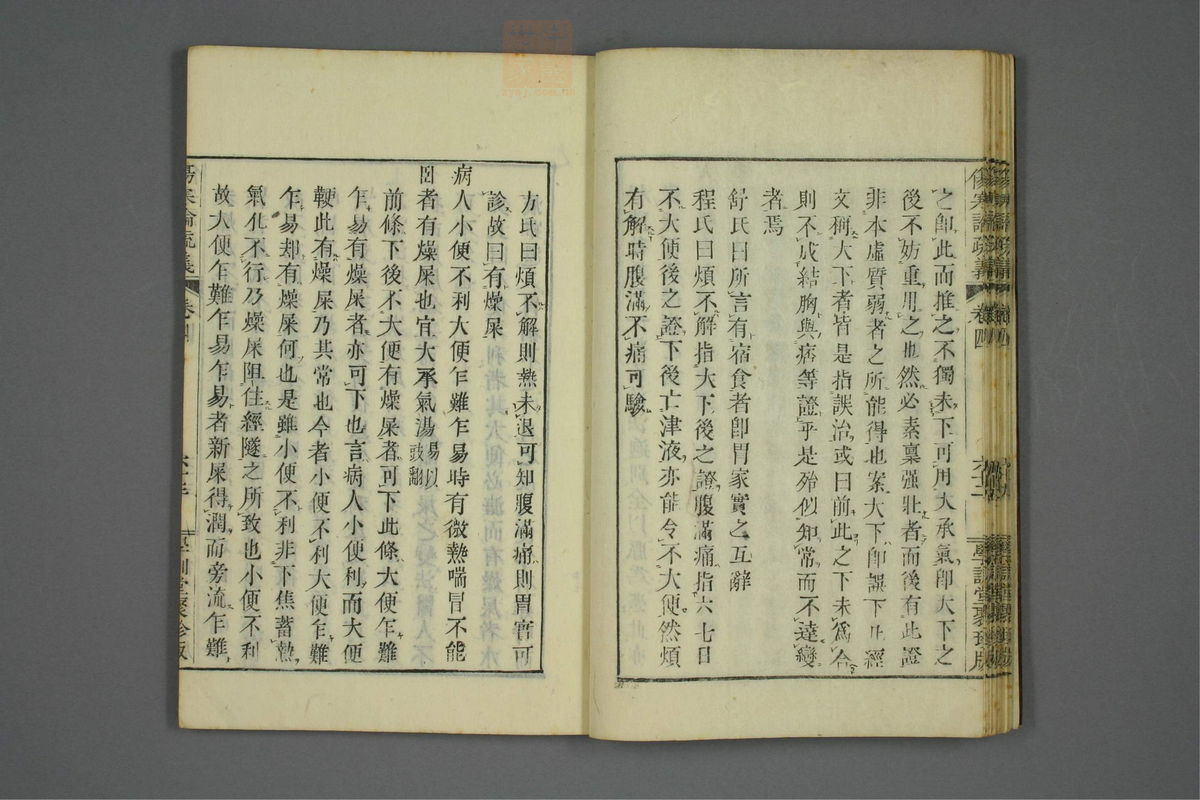 之卽此而推之不獨未下可用大承氣卽大下之
後不妨重用之也然必素稟强壯者而後有此證
非本虛質弱者之所能得也案大下卽誤下凡經
文稱大下者皆是指誤治或曰前此之下未爲合
則不成結胸與痞等證乎是殆似知常而不達變
者焉
舒氏曰所言有宿食者卽胃家實之互辭
程氏曰煩不解指大下後之證腹滿痛指六七日
不大便後之證下後亡津液亦能令不大便然煩
有解時腹滿不痛可驗
方氏曰煩不解則熱未退可知腹滿痛則胃實可
診故曰有燥屎
病人小便不利大便乍難乍易時有微熱喘冒不能
臥者有燥屎也宜大承氣湯
前條下後不大便有燥屎者可下此條大便乍難
乍易有燥屎者亦可下也言病人小便利而大便
鞕此有燥屎乃其常也今者小便不利大便乍難
乍易却有燥屎何也是雖小便不利非下焦蓄熱
氣化不行乃燥屎阻住經隧之所致也小便不利
故大便乍難乍易乍易者新屎得潤而旁流乍難
傷寒論疏義
卷四
學訓堂聚珍版